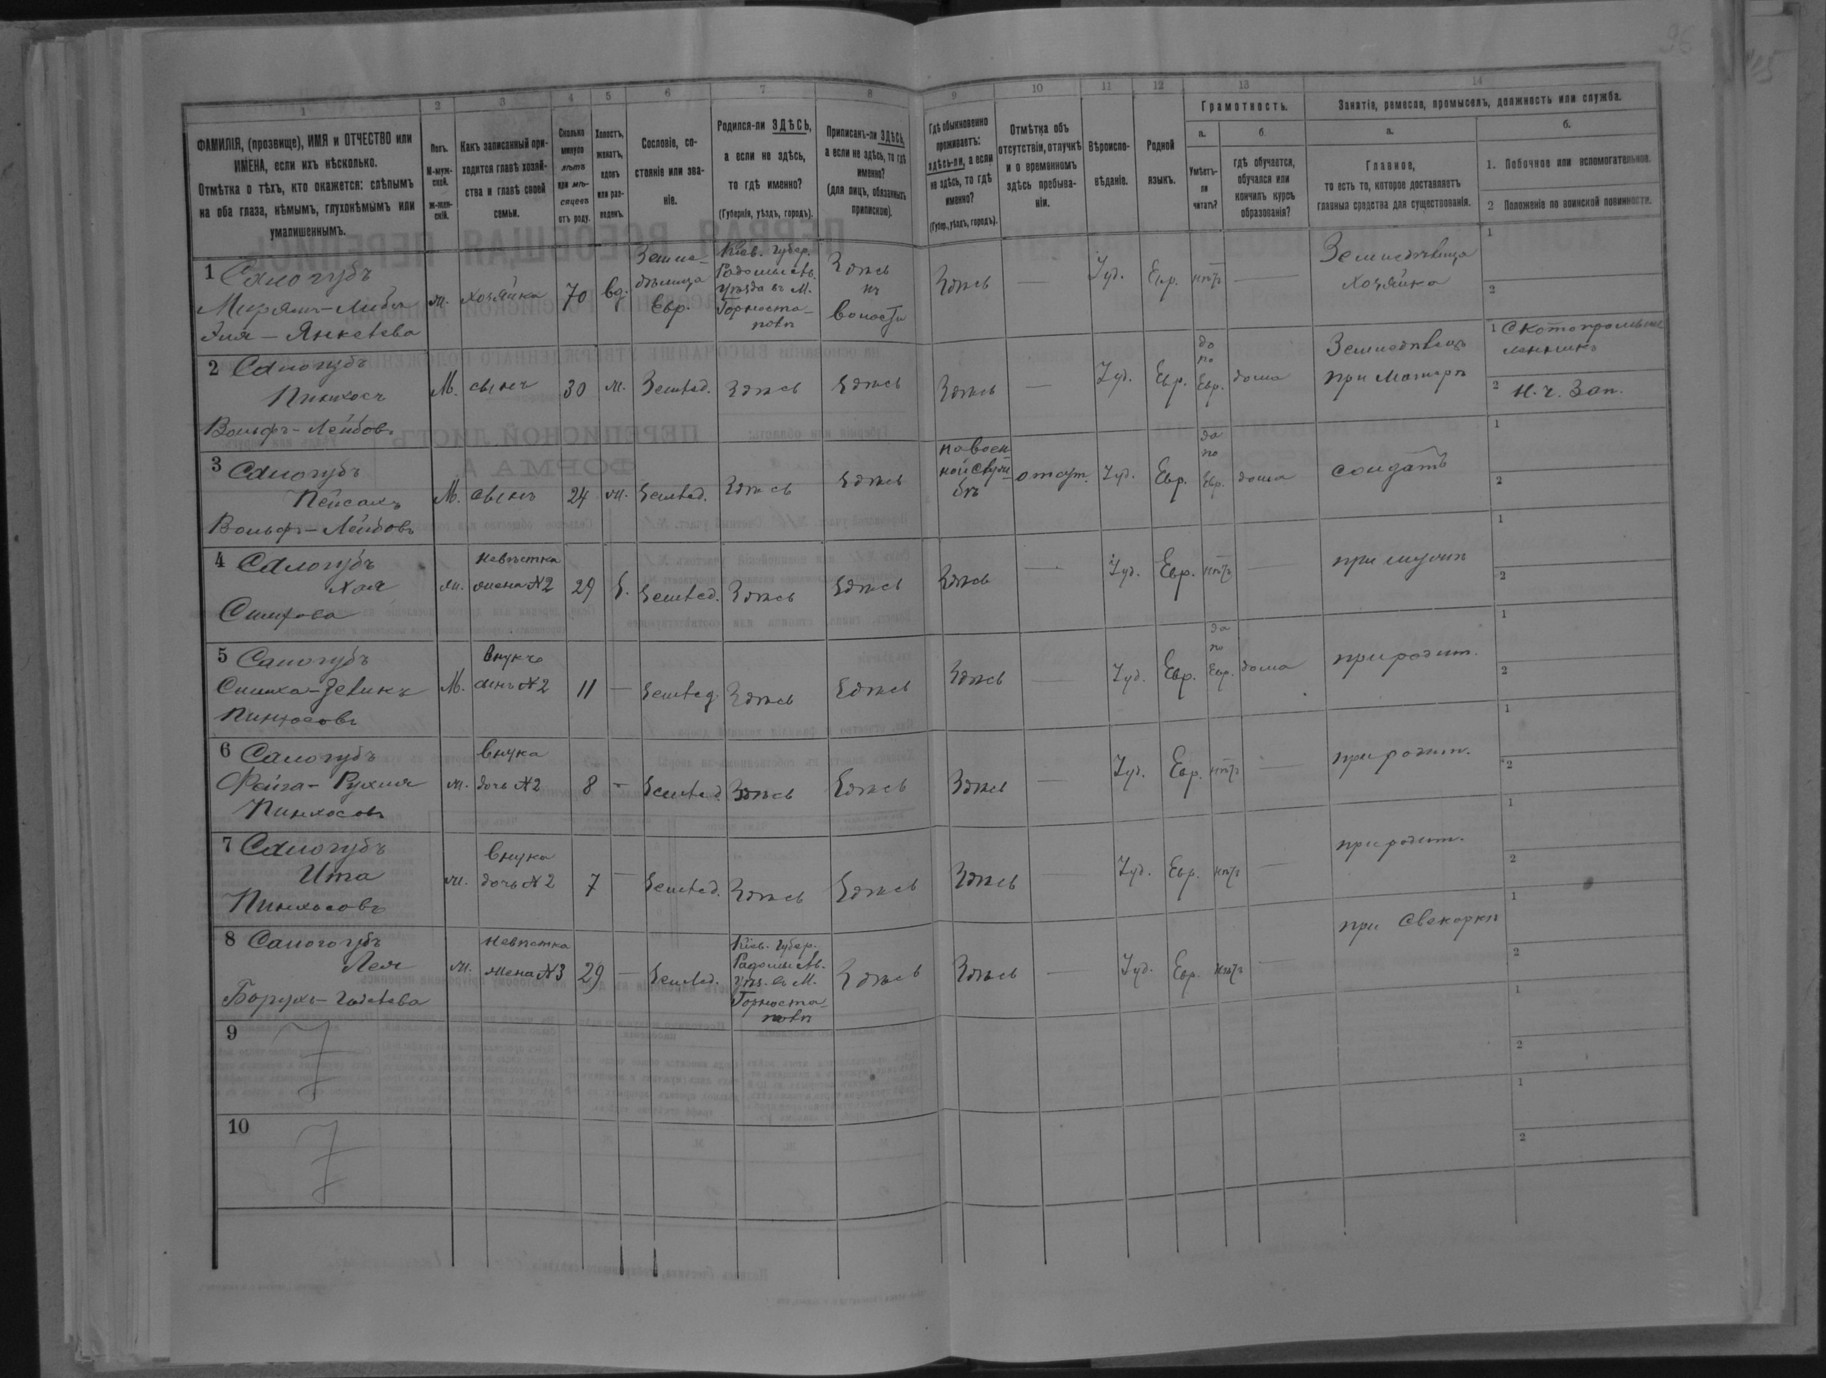 95
1 2 3 4 5 6 7 8 9 10 11 12 13 14
ФАМИЛІЯ, (прозвище), ИМЯ и ОТЧЕСТВО или ИМЕНА, если ихъ нѣсколько.
Отмѣтка о тѣхъ, кто окажется: слѣпымъ на оба глаза, нѣмымъ, глухонѣмымъ или умалишеннымъ.
Полъ. М-муж-ской. ж-жен-скій.
Какъ записанный при-ходится главѣ хозяй-ства и главѣ своей семьи.
Сколько минуло лѣтъ или мѣ-сяцевъ отъ роду.
Холостъ, женатъ, вдовъ или раз-веденъ.
Сословіе, со-стояніе или зва-ніе.
Родился-ли ЗДѢСЬ, а если не здѣсь, то гдѣ именно?
(Губернія, уѣздъ, городъ).
Приписанъ-ли ЗДѢСЬ, а если не здѣсь, то гдѣ именно?
(для лицъ, обязанныхъ припискою).
Гдѣ обыкновенно проживаетъ: здѣсь-ли, а если не здѣсь, то гдѣ именно?
(Губер., уѣздъ, городъ).
Отмѣтка объ отсутствіи, отлучкѣ и о временномъ здѣсь пребыва-ніи.
Вѣроиспо-вѣданіе.
Родной языкъ.
Грамотность.
а.
Умѣетъ-ли читать?
б.
гдѣ обучается, обучался или кончилъ курсъ образованія?
Занятія, ремесло, промыселъ, должность или служба.
а.
Главное,
то есть то, которое доставляетъ главныя средства для существованія.
б.
1. Побочное или вспомогательное.
2 Положеніе по воинской повинности.
1 Салогубъ
Мирямъ-Либа
Эля-Янкелева
ж. хозяйка 70 вд. Земле-дѣлица Евр.
Кіев. Губер. Радомысль. Уѣзда въ М. Горноста-полѣ
Здѣсь въ волости
Здѣсь — Іуд. Евр. нѣтъ —
Земледѣлица
хозяйка
2 Салогубъ
Пинхосъ
Вольфъ-Лейбовъ
М. сынъ 30 ж. Землед. Здѣсь Здѣсь Здѣсь — Іуд. Евр. да по Евр. дома
Земледѣлецъ
при матери
1 Скотопромыш-
ленникъ
2 Н. Ч. Зап.
3 Салогубъ
Пейсахъ
Вольфъ-Лейбовъ
М. сынъ 24 ж. Землед. Здѣсь Здѣсь на воен-ной служ-бѣ отсут. Іуд. Евр. да по Евр. дома солдатъ
4 Салогубъ
Хая
М. невѣстка жена №2 29 З. Землед. Здѣсь Здѣсь Здѣсь — Іуд. Евр. нѣтъ — при мужѣ
5 Салогубъ
Симха-Зевинъ
Пинхосовъ
М. внукъ сынъ №2 11 — Землед. Здѣсь Здѣсь Здѣсь — Іуд. Евр. да по Евр. дома при родит.
6 Салогубъ
Фейга-Рухля
Пинхосов
ж. внука дочь №2 8 — Землед. Здѣсь Здѣсь Здѣсь — Іуд. Евр. нѣтъ — при родит.
7 Салогубъ
Ита
Пинхосовъ
ж. внука дочь №2 7 — Землед. Здѣсь Здѣсь Здѣсь — Іуд. Евр. нѣтъ — при родит.
8 Салогубъ
Лея
Борухъ-
ж. невѣстка жена №3 29 — Землед.
Кіев. Губер. Радомысль. Уѣз. въ М. Горноста-полѣ
Здѣсь Здѣсь — Іуд. Евр. нѣтъ — при свекорки
9
10